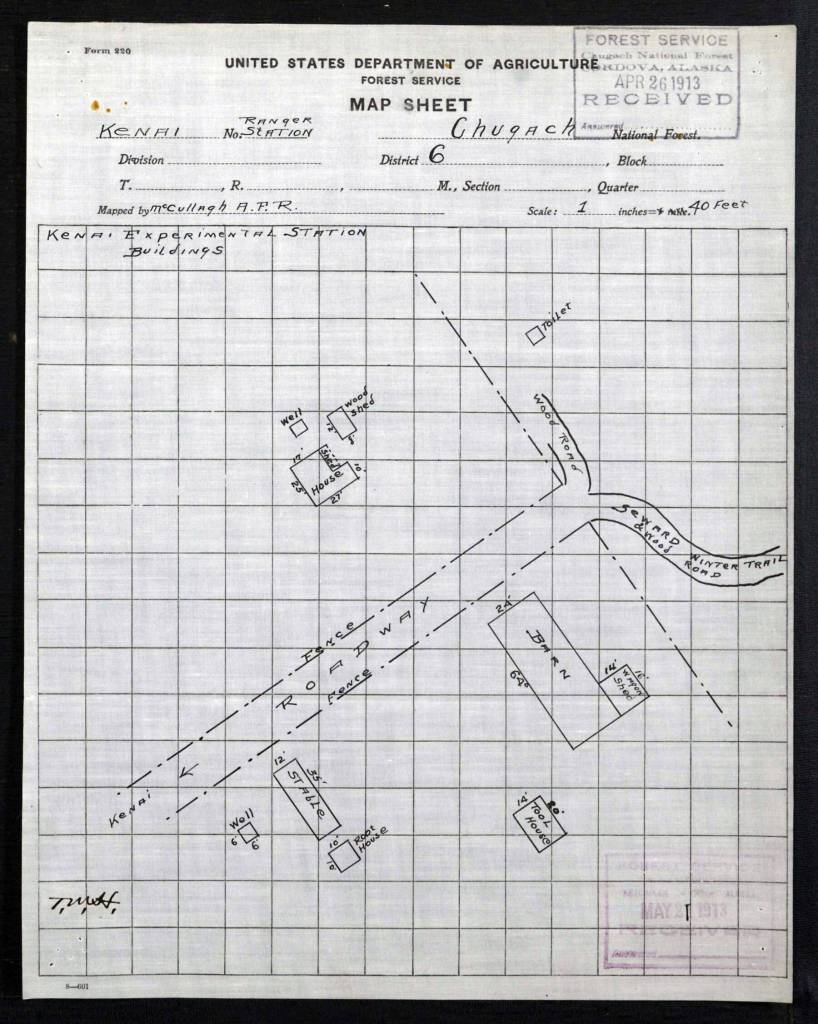 Form 220
UNITED STATES DEPARTMENT OF AGRICULTURE
FOREST SERVICE
MAP SHEET
FOREST SERVICE
Chugach National Forest
CORDOVA, ALASKA
APR 26 1913
RECEIVED
Answered
Kenai No. Ranger Station Chugach National Forest.
Division District 6, Block
T. , R. , M., Section , Quarter
Mapped by McCullagh A.F.R. Scale: 1 inches= 40 Feet
Kenai Experimental Station
Buildings
Toilet
Wood Road
Well
Wood Shed
12'
17'
Shed
House
10'
25'
27'
Seward
& Wood
Winter Trail
Road
Fence
ROADWAY
Fence
Kenai
24'
BARN
64'
14'
16'
Wagon Shed
12'
35'
Stable
Well
6' 6
10'
10'
Root House
14'
20'
Tool House
MAY 1913
RECEIVED
8—601